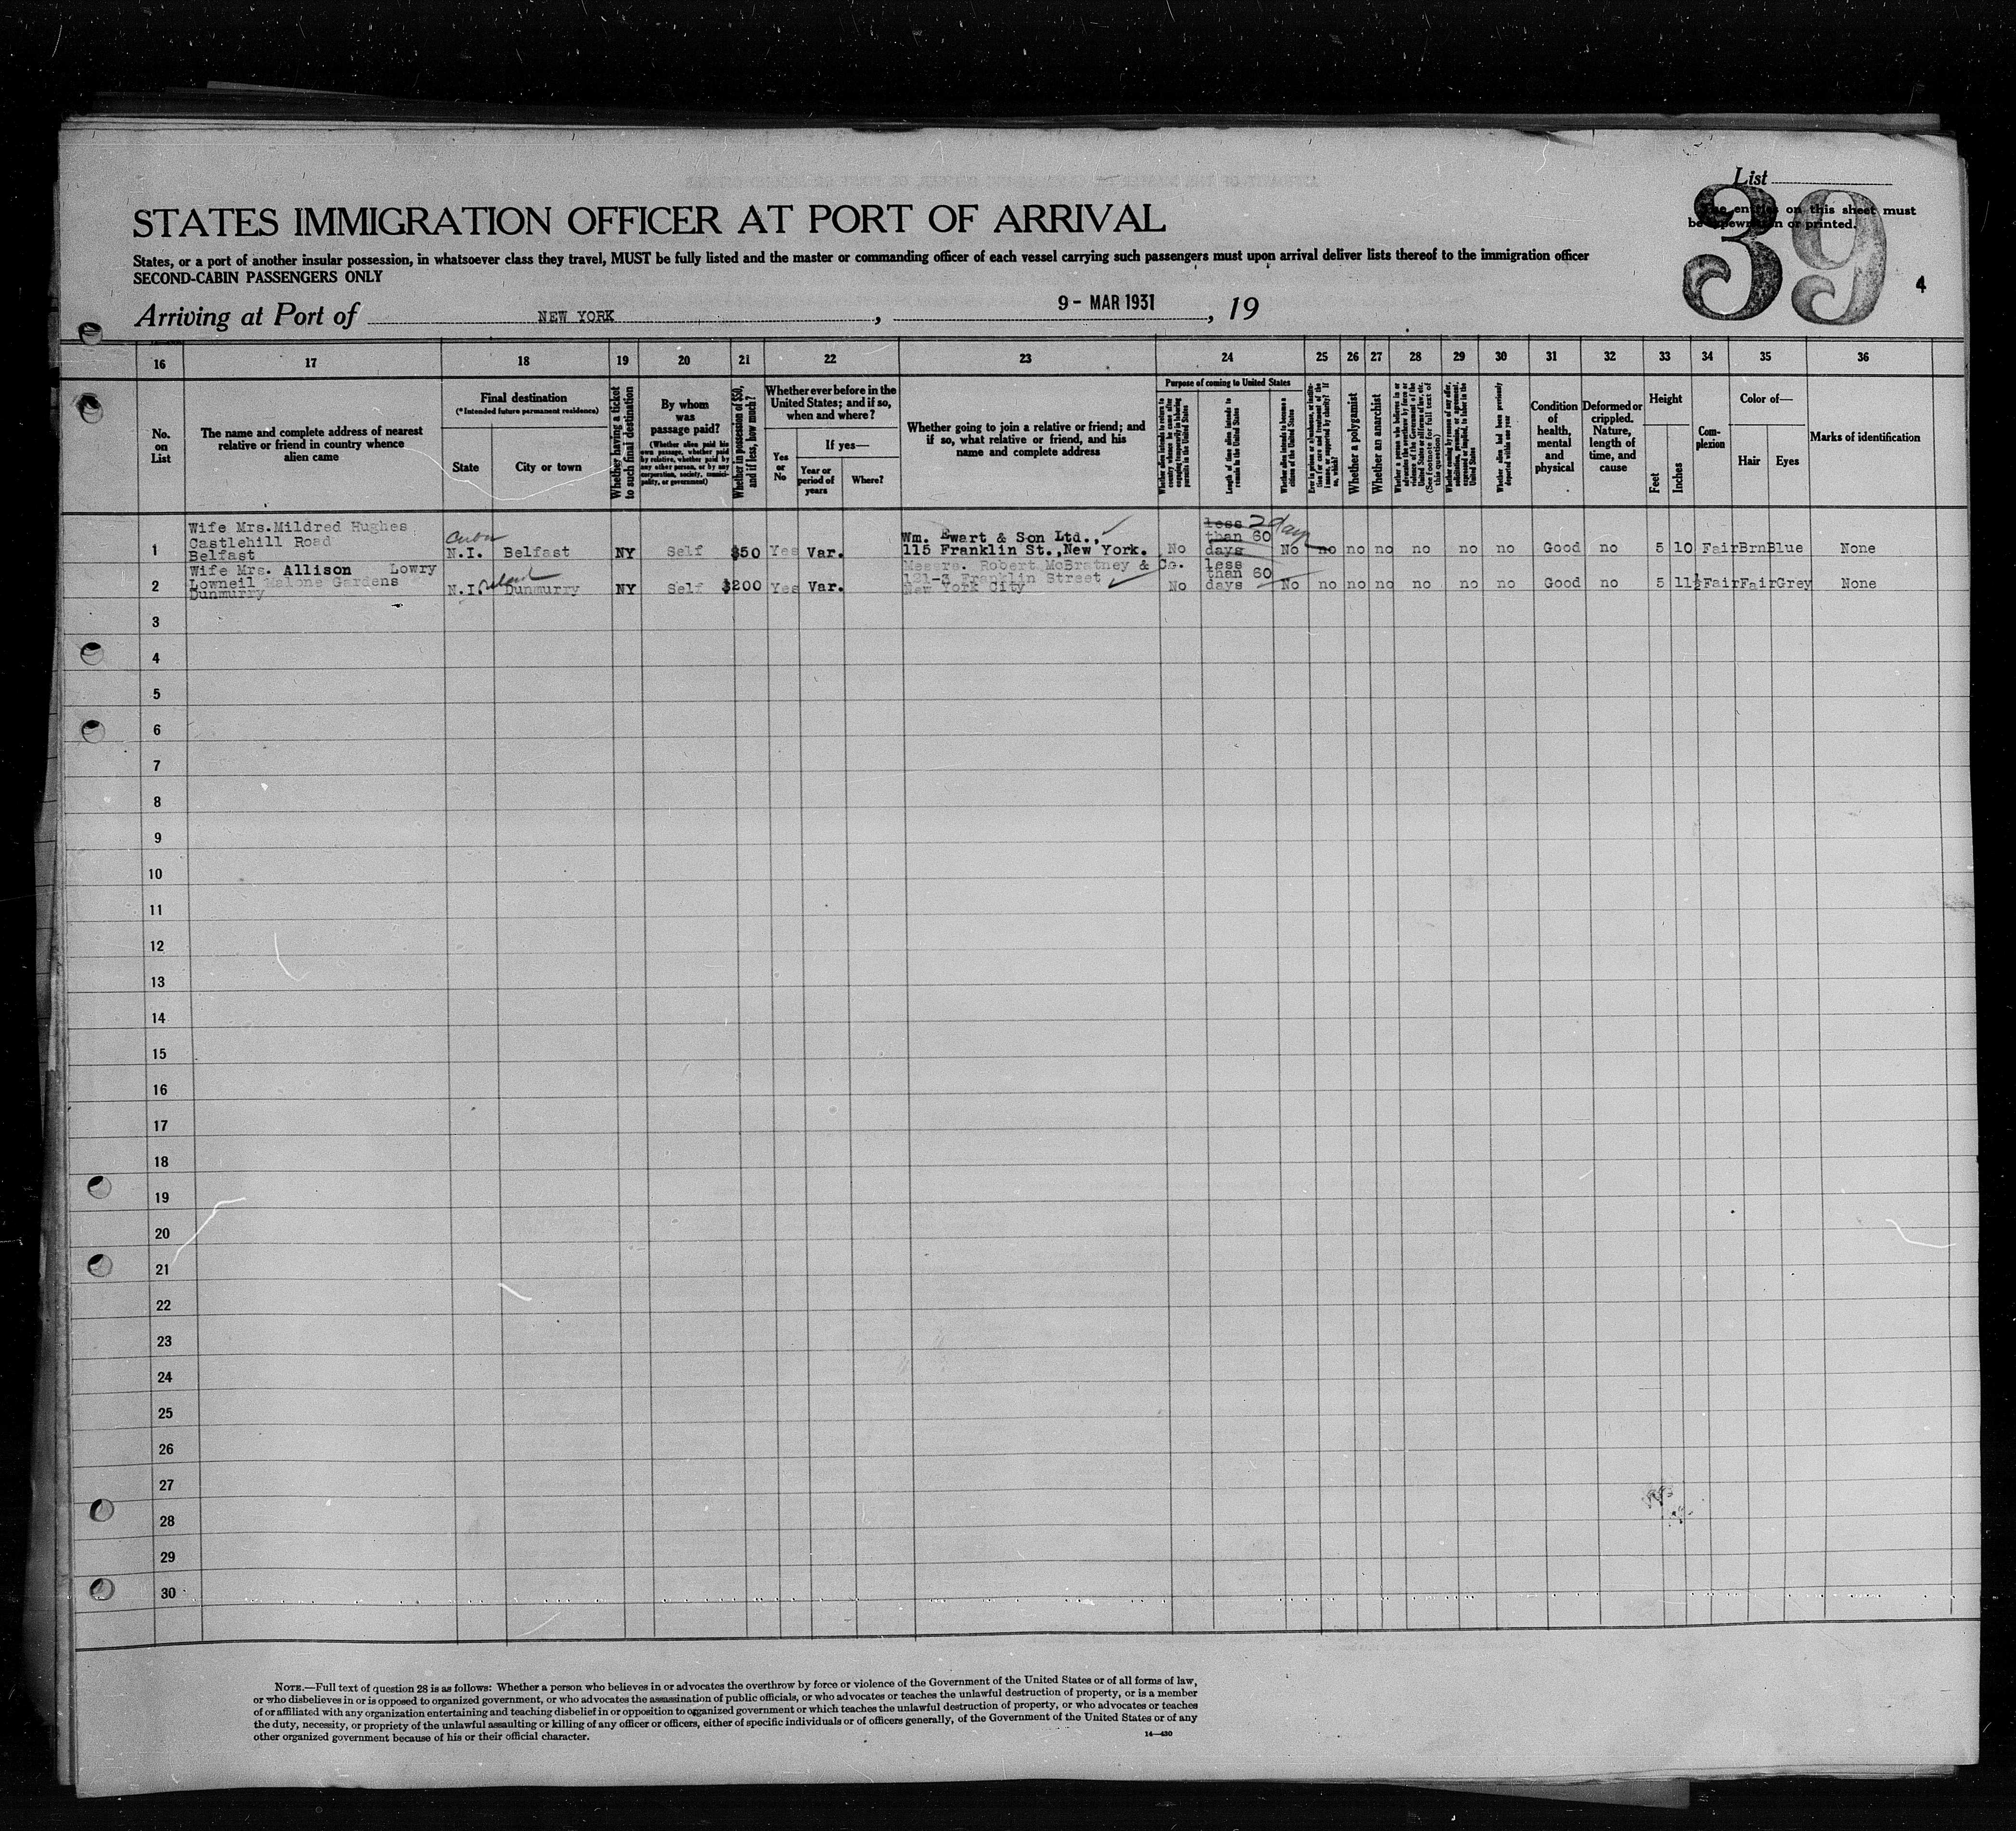 List
39
The entries on this sheet must
be typewritten or printed.
4
STATES IMMIGRATION OFFICER AT PORT OF ARRIVAL
States, or a port of another insular possession, in whatsoever class they travel, MUST be fully listed and the master or commanding officer of each vessel carrying such passengers must upon arrival deliver lists thereof to the immigration officer
SECOND-CABIN PASSENGERS ONLY
Arriving at Port of NEW YORK, 9 - MAR 1931, 19
16 17 18 19 20 21 22 23 24 25 26 27 28 29 30 31 32 33 34 35 36
No.
on
List
The name and complete address of nearest
relative or friend in country whence
alien came
Final destination
(*Intended future permanent residence)
State
City or town
Whether having a ticket
to such final destination
By whom
was
passage paid?
(Whether alien paid his
own passage, whether paid
by relative, whether paid by
any other person, or by any
corporation, society, munici-
pality, or government)
Whether in possession of $50,
and if less, how much?
Whether ever before in the
United States; and if so,
when and where?
Yes
or
No
If yes—
Year or
period of
years
Where?
Whether going to join a relative or friend; and
if so, what relative or friend, and his
name and complete address
Purpose of coming to United States
Whether alien intends to return to
country whence he came after
engaging temporarily in laboring
pursuits in the United States
Length of time alien intends to
remain in the United States
Whether alien intends to become a
citizen of the United States
Ever in prison or almshouse, or institu-
tion for care and treatment of the
insane, or supported by charity? If
so, which?
Whether a polygamist
Whether an anarchist
Whether a person who believes in or
advocates the overthrow by force or
violence of the Government of the
United States or all forms of law, etc.
(See footnote for full text of
this question)
Whether coming by reason of any offer,
solicitation, promise, or agreement,
expressed or implied, to labor in the
United States
Whether alien had been previously
deported within one year
Condition
of
health,
mental
and
physical
Deformed or
crippled.
Nature,
length of
time, and
cause
Height
Feet
Inches
Com-
plexion
Color of—
Hair
Eyes
Marks of identification
Wife Mrs.Mildred Hughes
Castlehill Road
Belfast
1 Cuba N.I. Belfast NY Self $50 Yes Var.
Wm. Ewart & Son Ltd.,
115 Franklin St.,New York.
No less than 60 days 2 days No no no no no no no Good no 5 10 Fair Brn Blue None
Wife Mrs. Allison Lowry
Lowneil Malone Gardens
Dunmurry
2 N.I. Ireland Dunmurry NY Self $200 Yes Var.
Messrs. Robert McBratney & Co.
121-3 Franklin Street
New York City
No less than 60 days No no no no no no no Good no 5 11½ Fair Fair Grey None
3
4
5
6
7
8
9
10
11
12
13
14
15
16
17
18
19
20
21
22
23
24
25
26
27
28
29
30
NOTE.—Full text of question 28 is as follows: Whether a person who believes in or advocates the overthrow by force or violence of the Government of the United States or of all forms of law,
or who disbelieves in or is opposed to organized government, or who advocates the assassination of public officials, or who advocates or teaches the unlawful destruction of property, or is a member
of or affiliated with any organization entertaining and teaching disbelief in or opposition to organized government or which teaches the unlawful destruction of property, or who advocates or teaches
the duty, necessity, or propriety of the unlawful assaulting or killing of any officer or officers, either of specific individuals or of officers generally, of the Government of the United States or of any
other organized government because of his or their official character.
14—430